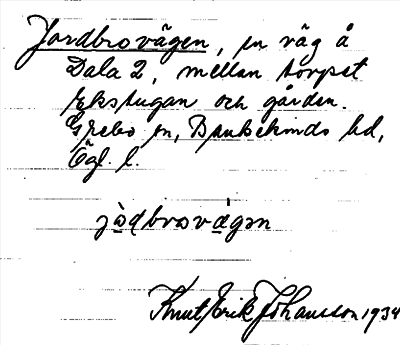 Jordbrovägen, en väg å
Dala 2, mellan torpet
Ekstugan och gården.
Grebo sn, Bankekinds hd,
Ög. l.
jo̱dbrovä̱gən
Knut Erik Johansson 1934